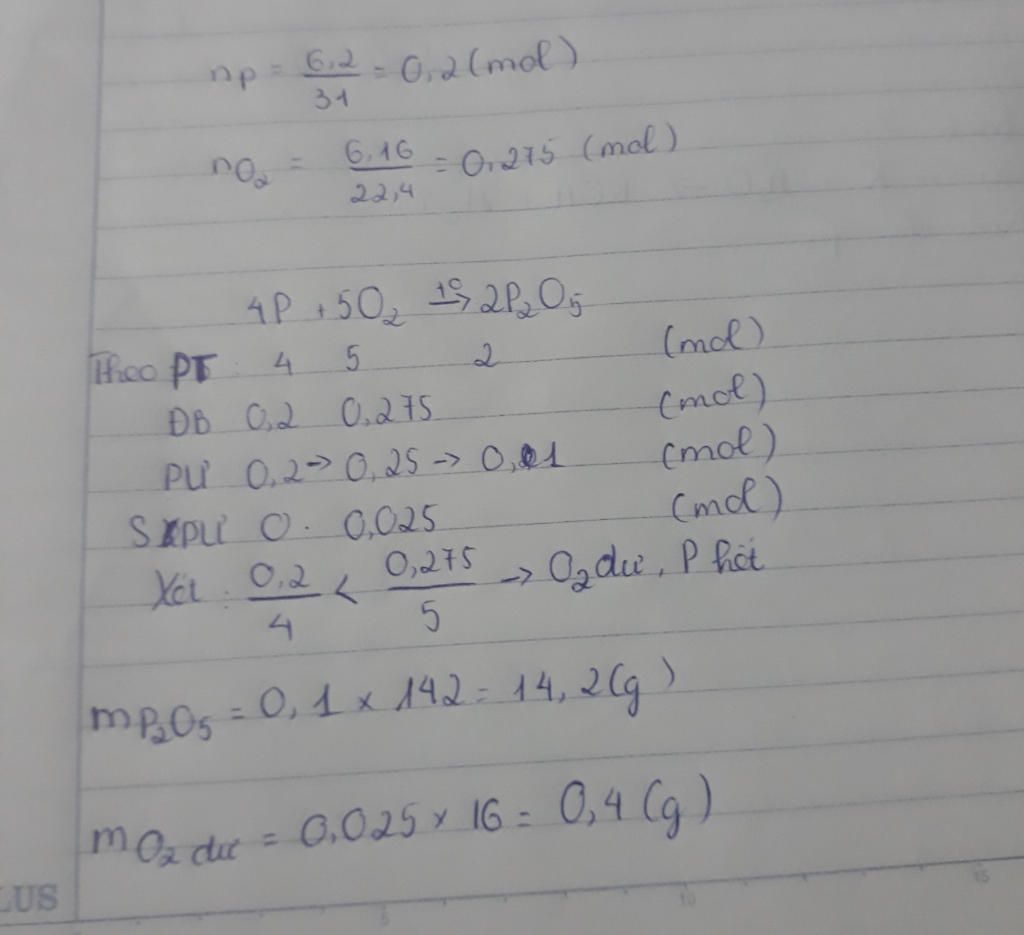 nP = 6,2/31 = 0,2 (mol)
nO₂ = 6,16/22,4 = 0,275 (mol)
4P + 5O₂ t° → 2P₂O₅
Theo PT : 4 5 2 (mol)
ĐB 0,2 0,275 (mol)
PƯ 0,2 → 0,25 → 0,1 (mol)
SPƯ 0 . 0,025 (mol)
Xét : 0,2/4 < 0,275/5 → O₂ dư, P hết
mP₂O₅ = 0,1 × 142 = 14,2 (g)
mO₂ dư = 0,025 × 16 = 0,4 (g)
LUS
5 10 15